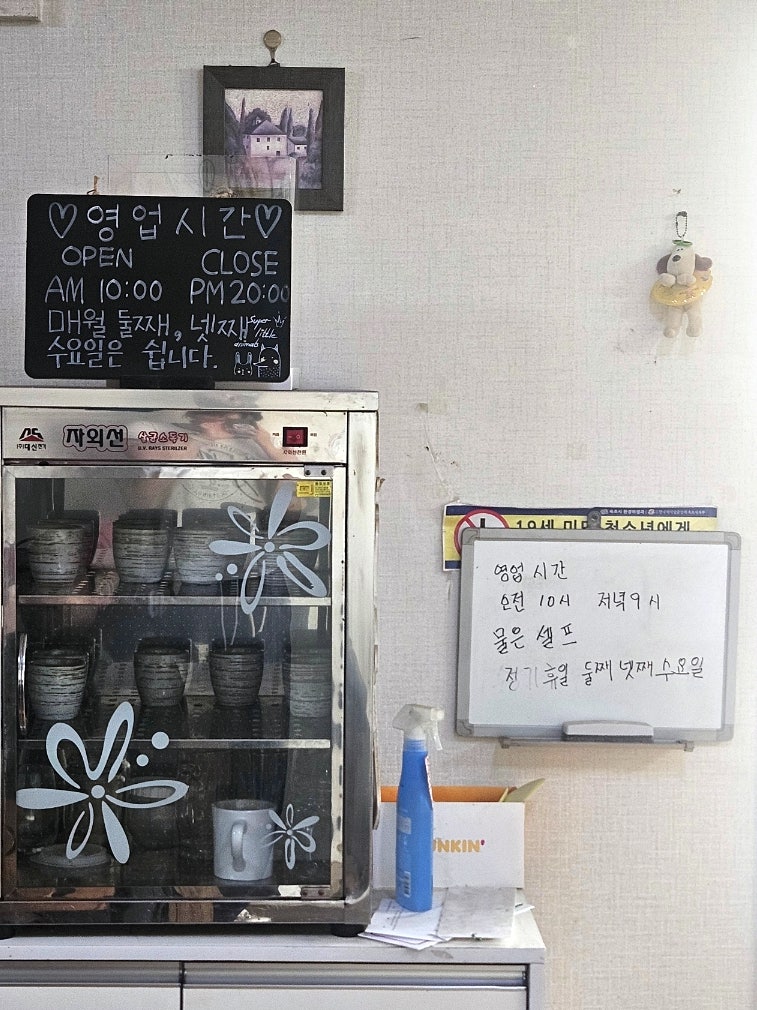 ♡영업시간♡
OPEN CLOSE
AM 10:00 PM 20:00
매월 둘째, 넷째
수요일은 쉽니다.
super
little
animals
(주)대신전기 자외선 살균소독기
U.V. RAYS STERILIZER
19세 미만 청소년에게
영업 시간
오전 10시 저녁 9시
물은 셀프
정기휴일 둘째 넷째 수요일
UNKIN'